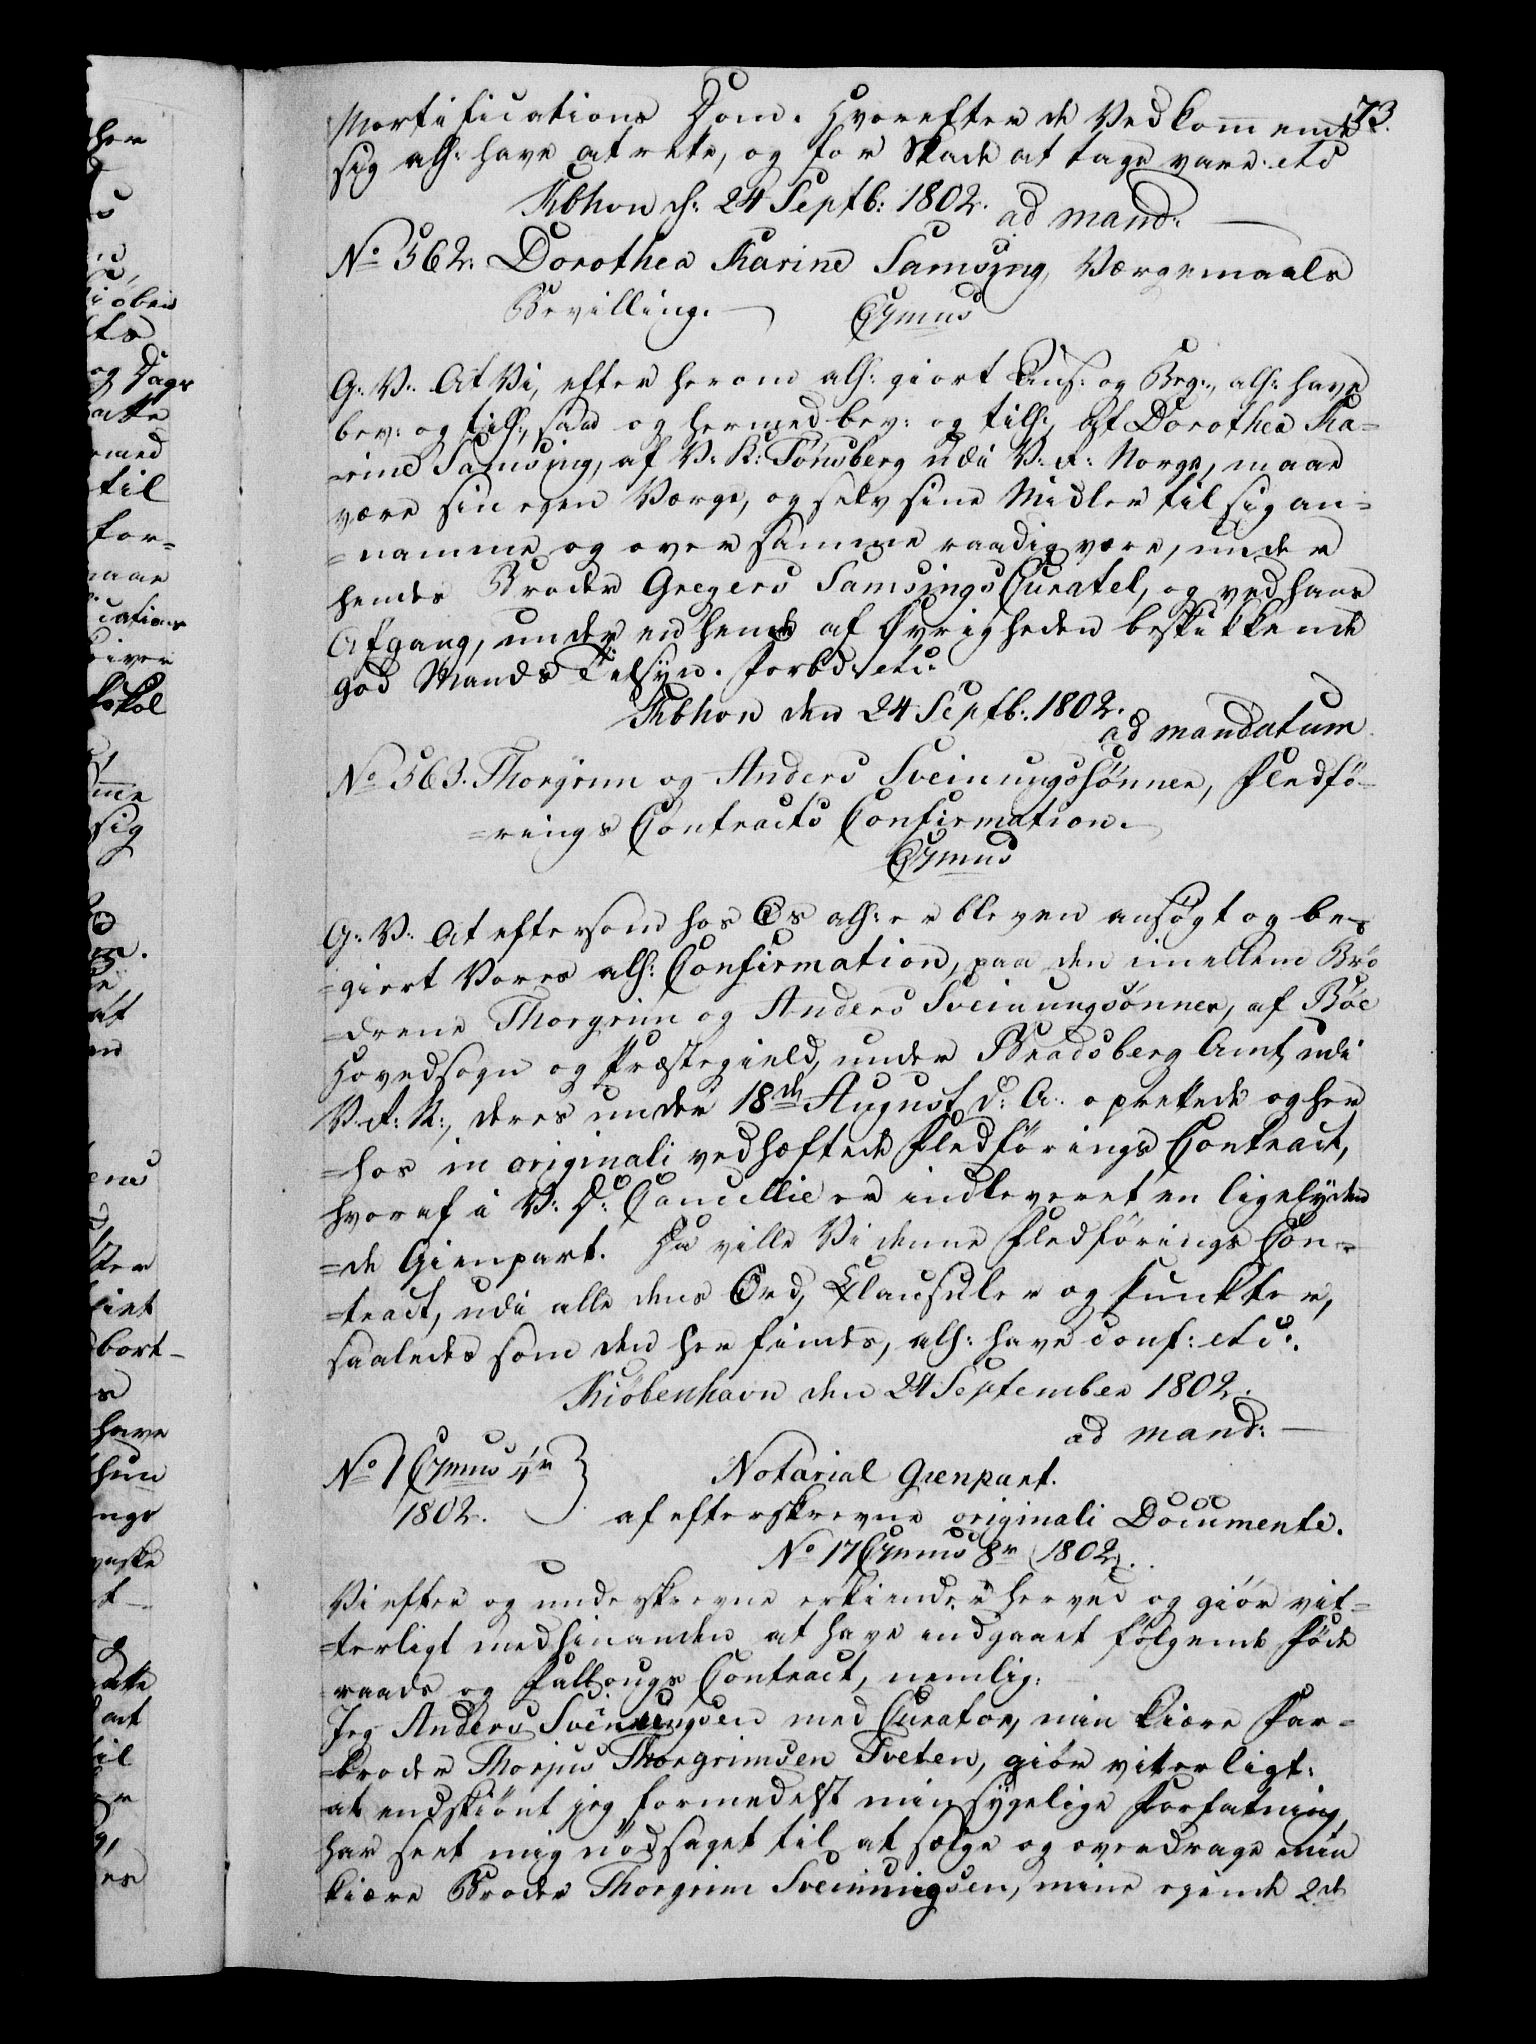 73.
Mortifications Dom. Hvorefter de Vedkommende
sig alh: have at rette, og for Skade at tage vare: etc
Kbhvn d: 24 Septb: 1802. ad mand:
No 562. Dorothea Karine Samsing, Værgemaals
Bevilling.
G: V: At Vi, efter herom alh: giort Ans: og Beg:, alh: have
bev: og till:, saa og hermed bev: og till:, at Dorothea Ka-
rine Samsing, af V: K: Tønsberg udi V: R: Norge, maae
være sin egen Værge, og selv sine Midler til sig an-
=namme og over samme raadig være, under
hendes Broder Gregers Samsings Curatel, og ved hans
Afgang, under en hende af Øvrigheden beskikkende
god Mands Tilsyn. Forbd: etc:
Kbhvn den 24 Septb: 1802.
ad mandatum
No 563. Thorgrim og Anders Sveinungssönner, Fledfö-
=rings Contracts Confirmation.
G: V: At eftersom hos Os alh: er bleven ansøgt og be-
=giert Vores alh: Confirmation, paa den imellem Brö
=drene Thorgrim og Anders Sveinungsönner, af Böe
Hovedsogn og Præstegield, under Bradsberg Amt, udi
V: R: N:, deres under 18de August d: A: oprettede og her
=hos in originali vedhæftede Fledförings Contract,
hvoraf i V: D: Cancellie er indleveret en ligelyden
=de Gienpart. Da ville Vi denne Fledförings Con-
=tract, udi alle dens Ord, Klausuler og Punkter,
saaledes som den her findes, alh: have conf: etc:.
Kiöbenhavn den 24 September 1802.
ad mand:
No 1 4r
1802.
Notarial Genpart.
af efterskrevne originali Documente.
No 17 8r 1802.
Vi efter og underskrevne erkiender herved og giör vit-
=terligt med hinanden at have indgaaet følgende Föde
raads og Fallougs Contract, nemlig:
Jeg Anders Sveinungsen med Curator, min kiære Far-
=broder Thorjus Thorgrimsen Tveten, giör viterligt:
at endskiönt jeg formedelst min sygelige Forfatning,
har seet mig nödsaget til at sælge og overdrage min
kiære Broder Thorgrim Sveinungsen, mine egende 2de